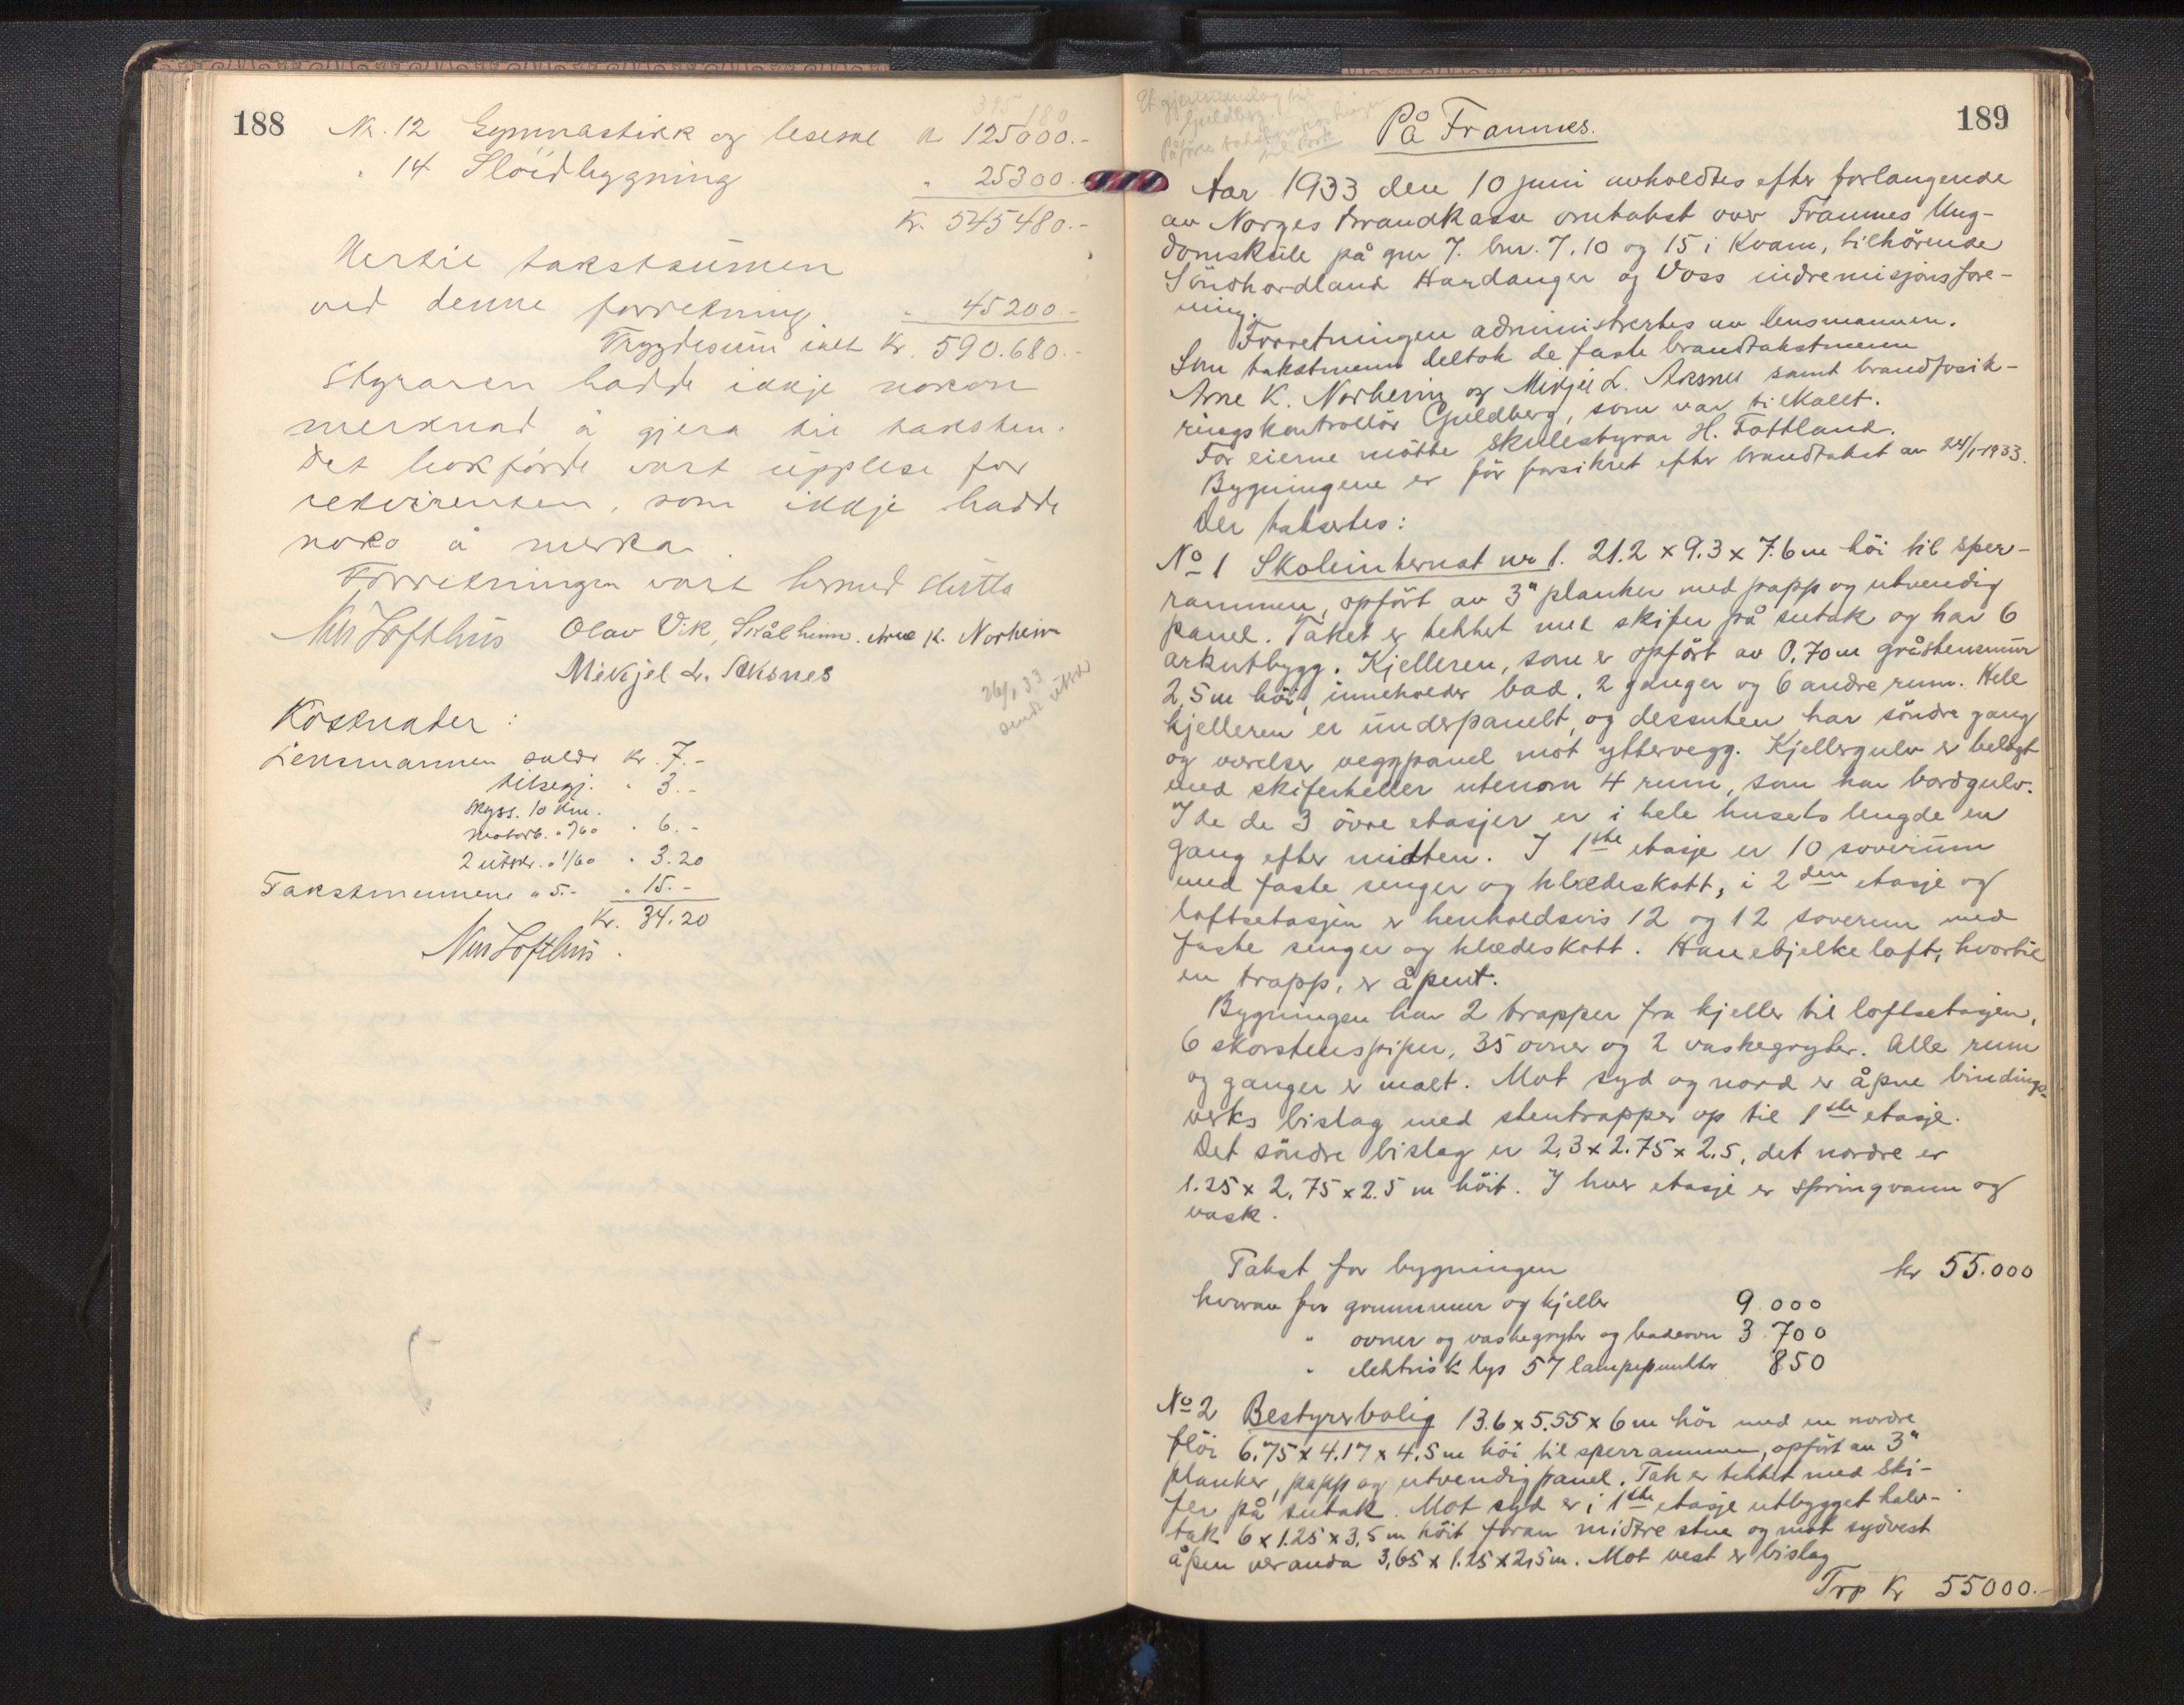 188
395 180
Nr. 12 Gymnastikk og lesesal kr 125000.-
" 14 Slöidbygning " 25300.-
Kr. 545480.-
Hertil takstsumen
ved denne forretning " 45200.-
Trygdesum ialt Kr. 590.680.-
Styraren hadde ikkje nokon
merknad å gjera til taksten.
Det bokförde vart upplese for
rekvirenten, som ikkje hadde
noko å merka.
Forretningen vart hermed slutta
Nils Lofthus Olav Vik, Skålheim. Arne K. Norheim
Mikjel L. Aksnes
26/1 33
sendt utskr
Kostnader:
Lensmannen saldr kr. 7.-
tilsegj. " 3.-
Skyss. 10 km.
motorb. a 0/60 " 6.-
2 utskr. a 1/60 " 3.20
Takstmennene a 5.- " 15.-
Kr. 34.20
Nils Lofthus.
189
På Framnes.
Aar 1933 den 10 juni avholdtes efter forlangende
av Norges Brandkasse omtakst over Framnes Ung-
domskule på gnr 7. bnr. 7, 10 og 15 i Kvam, tilhörende
Söndhordland Hardanger og Voss indremisjonsfore-
ning.
Forretningen administrertes av lensmannen.
Som takstmenn deltok de faste brandtakstmenn
Arne K. Norheim og Mikjel L. Aksnes samt brandforsik-
ringskontrollör Guldberg, som var tilkallt.
For eierne mötte skulestyrar H. Tottland.
Bygningene er för forsikret efter brandtakst av 24/1-1933.
Der takseres:
No 1 Skoleinternat nr 1. 21.2 x 9.3 x 7.6 m höi til sper-
rammen, opfört av 3" planker med papp og utvendig
panel. Taket er tekket med skifer på sutak og har 6
arkutbygg. Kjelleren, som er opfört av 0,70 m gråstensmur
2,5 m höi, inneholder bad, 2 ganger og 6 andre rum. Hele
kjelleren er underpanelt, og dessuten har söndre gang
og værelser veggpanel mot yttervegg. Kjellergulv er belagt
med skiferheller utenom 4 rum, som har bordgulv.
I de de 3 övre etasjer er i hele husets lengde en
gang efter midten. I 1ste etasje er 10 soverum
med faste senger og klædeskott, i 2den etasje og
loftsetasjen er henholdsvis 12 og 12 soverum med
faste senger og klædeskott. Hanebjelkeloft, hvortil
en trapp, er åpent.
Bygningen har 2 trapper fra kjeller til loftsetasjen,
6 skorstenspiper, 35 ovner og 2 vaskegryter. Alle rum
og ganger er malt. Mot syd og nord er åpne bindings-
verks bislag med stentrapper op til 1ste etasje.
Det söndre bislag er 2,3 x 2.75 x 2.5, det nordre er
1.25 x 2,75 x 2.5 m höit. I hver etasje er springvann og
vask.
Takst for bygningen kr 55.000
hvorav for grunnmur og kjeller 9.000
" ovner og vaskegryter og badeovn 3.700
" elektrisk lys 57 lampepunkter 850
No 2 Bestyrerbolig 13.6 x 5.55 x 6 m höi med en nordre
flöi 6,75 x 4.17 x 4,5 m höi til sperrammen, opfört av 3"
planker, papp og utvendig panel. Tak er tekket med ski-
fer på sutak. Mot syd er i 1ste etasje utbygget halv-
tak 6 x 1.25 x 3,5 m höit foran midtre stue og mot sydvest
åpen veranda 3,65 x 1.25 x 2,5 m. Mot vest er bislag
Trp Kr 55000.-